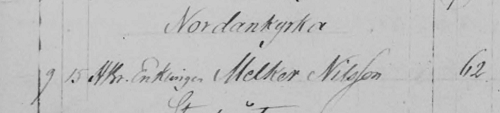 Nordankyrka
9 15 Enklingen Melker Nilsson 62